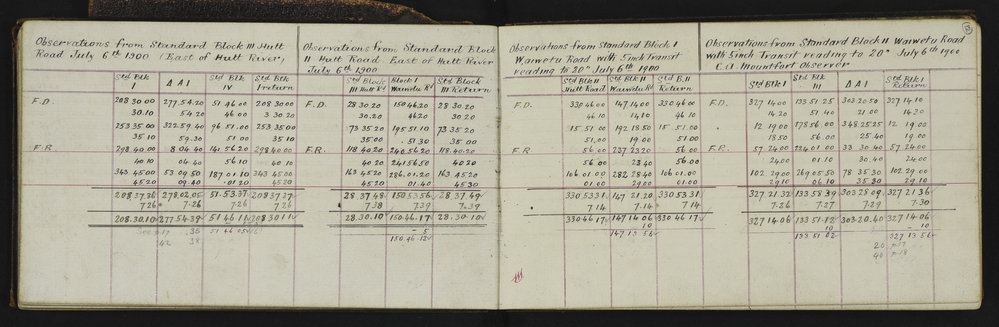 Observations from Standard Block III Hutt
Road July 6th 1900 (East of Hutt River)
Std Blk I   Δ A I   Std Blk IV   Std Blk I return
F.D. 208 30 00   277.54.20   51 46 00   208 30 00
30.10   54 20   46 00   3 30 20
253 35 00   322 59.40   96 51.00   253 35 00
35 10   59.30   51 00   35 10
F.R. 298 40 00   8 04 40   141 56 20   298 40 00
40 10   04.40   56 10   40 10
343 45 00   53 09 50   187 01 10   343 45 00
45 20   09 40   01.20   45 20
208 37 36   278 02 05   51.53.37   208 37 37
7 26   7.26   7.26   7.26
208.30.10   277 54 39   51 46 11   208 30 11
Observations from Standard Block
II Hutt Road. East of Hutt River
July 6th 1900
Std Block III Hutt Rd   Block I Waiwetu Rd   Std Block III Return
F.D. 28 30.20   150 46.20   28 30.20
30.20   46 20   30.20
73 35 20   195 51.10   73 35 20
35.00   51 30   35 10
F.R. 118 40 20   240 56 20   118.40.20
40 20   241 56 50   40 20
163 45 20   286.01.20   163 45 20
45 20   01.40   45 30
28 37 48   150 53 56   28 37.49
7.38   7.39   7.39
28.30.10   150 46.17   28.30.10
- 5
150.46.12
Observations from Standard Block I
Waiwetu Road with 5 inch Transit
reading to 20" July 6th 1900
Std Blk II Hutt Road   Std Blk II Waiwetu Rd   Std B. II Return
F.D. 330 46 00   147 14 00   330 46 00
46 10   14 10   46 10
15 51 00   192 18 50   15 51 00
51.00   19 00   51.00
F.R. 56 00   237 23 20   56 00
56 00   23 40   56 00
106 01 00   282 28 40   106 01.00
01 00   29 00   01.00
330 53 31   147 21.20   330 53.31
7 14   7.14   7 14
330 46 17   147 14 06   330 46 17
10
147 13 56
Observations from Standard Block II Waiwetu Road
with 5 inch Transit reading to 20" July 6th 1900
C.A. Mountfort Observer
Std Blk I   Std Blk III   Δ A I   Std Blk Return
F.D. 327 14 00   133 51 25   303 20 50   327 14 10
14 20   51 40   21 00   14 20
12 19 00   178 56 00   348 25 25   12 19.00
18 50   56 00   25 40   19.00
F.R. 57 24 00   224 01 00   33 30 40   57 24 00
24.00   01 10   30 40   24 00
102 29 00   269 05 50   78 35 30   102 29 00
29 10   06 10   35 30   29 10
327 21 32   133 58 39   303 28 09   327 21 36
7.26   7.27   7.29   7.30
327 14 06   133 51.12   303 20.40   327 14 06
10   10
133 51 02   327 13.56